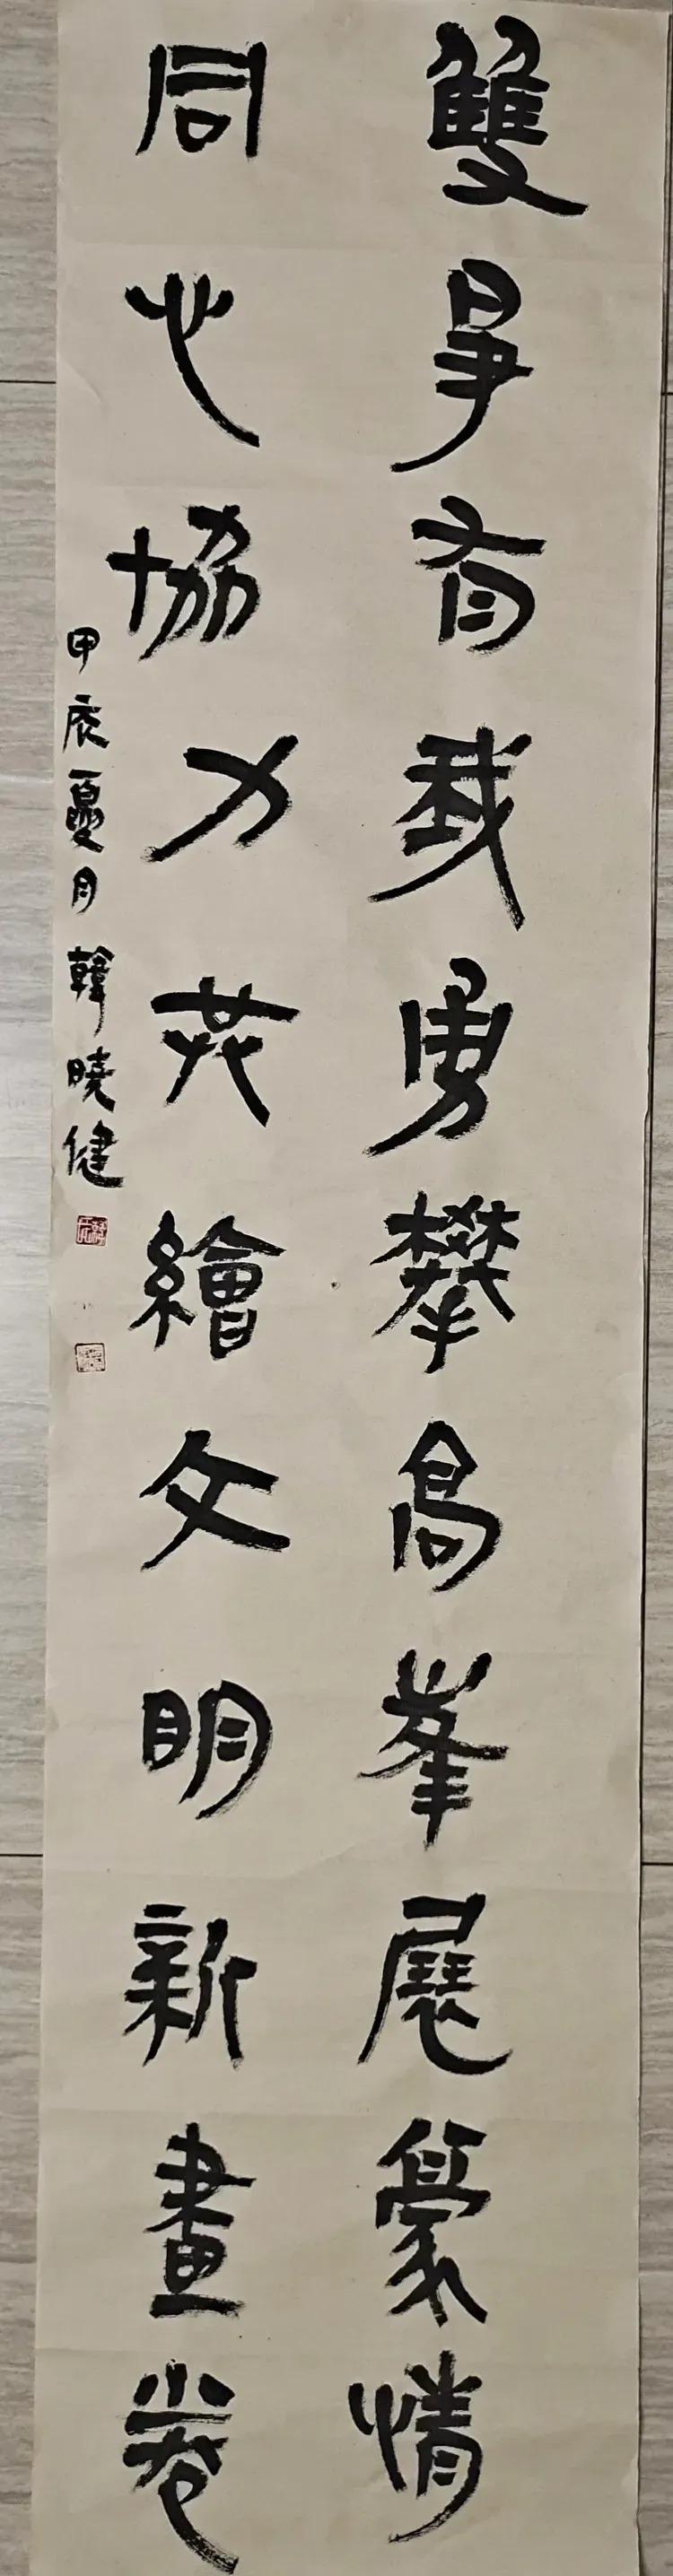 雙爭有我勇攀高峯展豪情
同心協力共繪文明新畫卷
甲辰夏月韓曉健